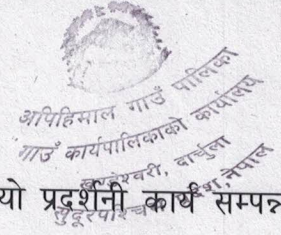 अपिहिमाल गाउँ पालिका
गाउँ कार्यपालिकाको कार्यालय
दार्चुला
नेपाल
यो प्रदर्शनी कार्य सम्पन्न